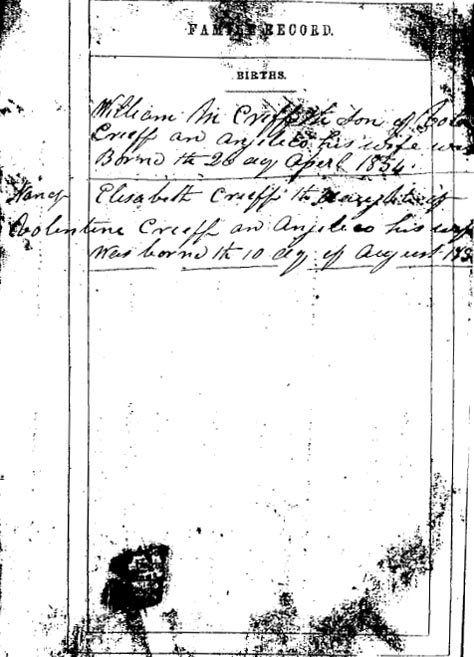 FAMILY RECORD.
BIRTHS.
William M Creff the Son of
Creff an anjelico his wife was
Born th 26 day Aperl 1854.
Nancy Elisabeth Creeff th daughter of
Volentine Creeff an Anjelico his wife
was born th 10 dy of August